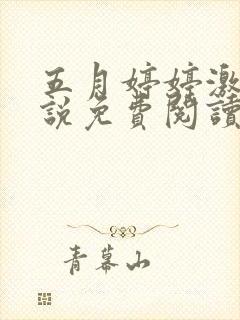 五月婷婷激
說免費閱讀
青幕山